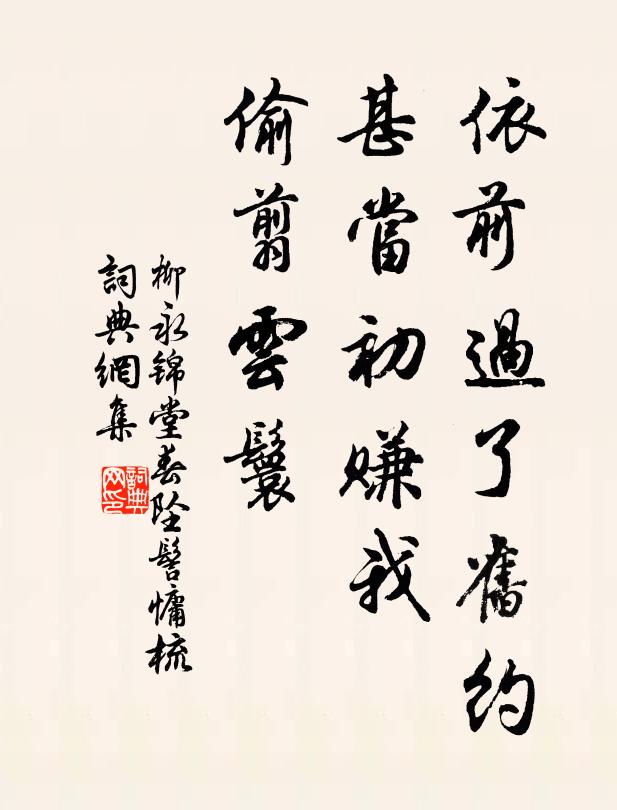 依前過了舊約
甚當初賺我
偷翦雲鬟
柳永錦堂春墜髻慵梳
詞典網集
詞典
网印